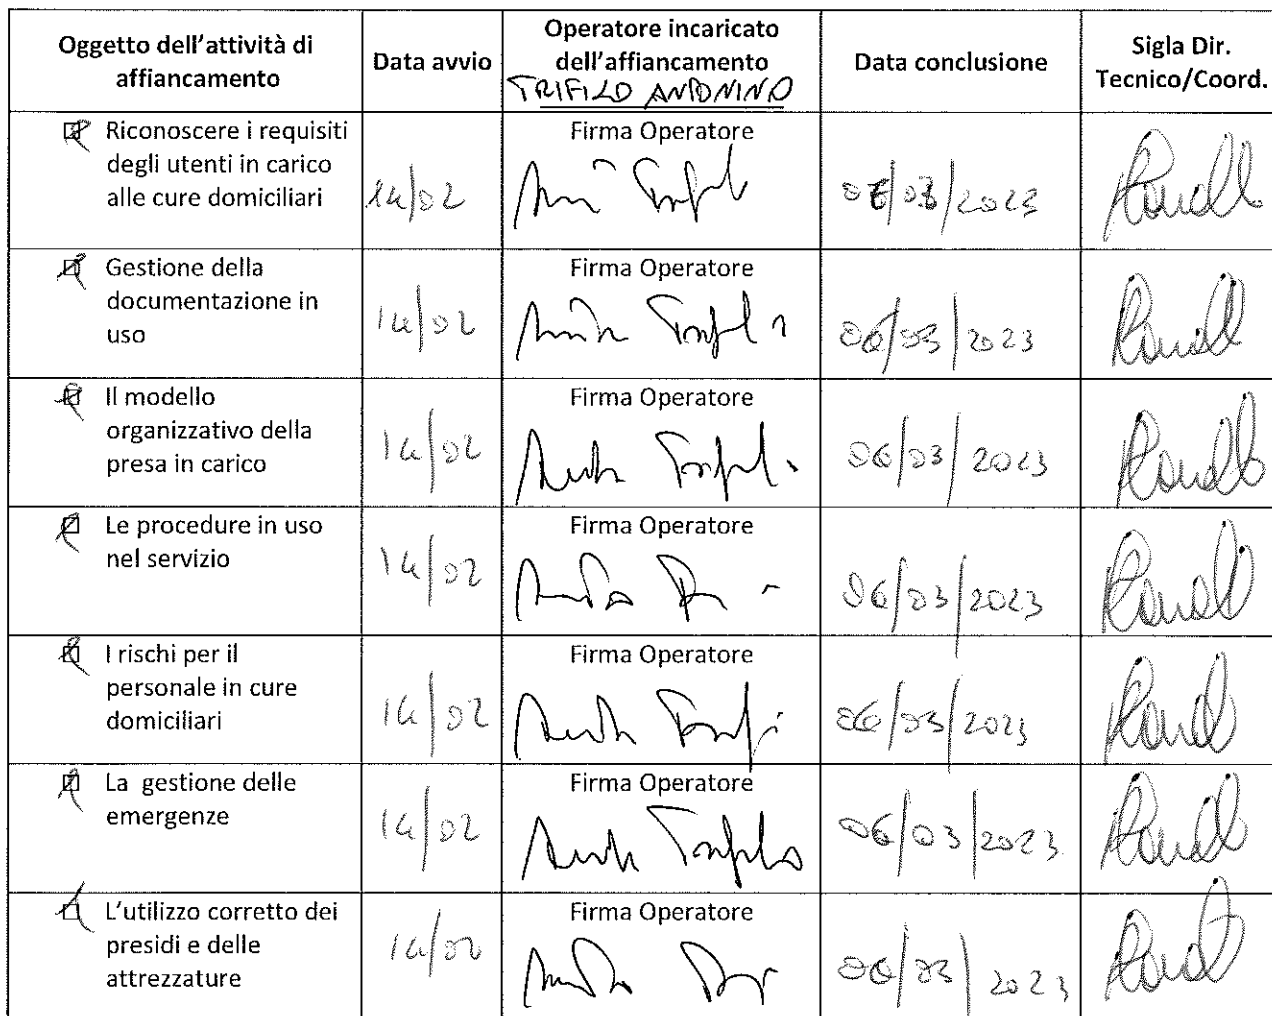 Oggetto dell'attività di
affiancamento
Data avvio
Operatore incaricato
dell'affiancamento
TRIFILO ANTONINO
Data conclusione
Sigla Dir.
Tecnico/Coord.
Riconoscere i requisiti
degli utenti in carico
alle cure domiciliari
14/02
Firma Operatore
/03/2023
Gestione della
documentazione in
uso
14/02
Firma Operatore
06/03/2023
Il modello
organizzativo della
presa in carico
14/02
Firma Operatore
06/03/2023
Le procedure in uso
nel servizio
14/02
Firma Operatore
06/03/2023
I rischi per il
personale in cure
domiciliari
14/02
Firma Operatore
06/03/2023
La gestione delle
emergenze
14/02
Firma Operatore
06/03/2023
L'utilizzo corretto dei
presidi e delle
attrezzature
14/02
Firma Operatore
06/03/2023